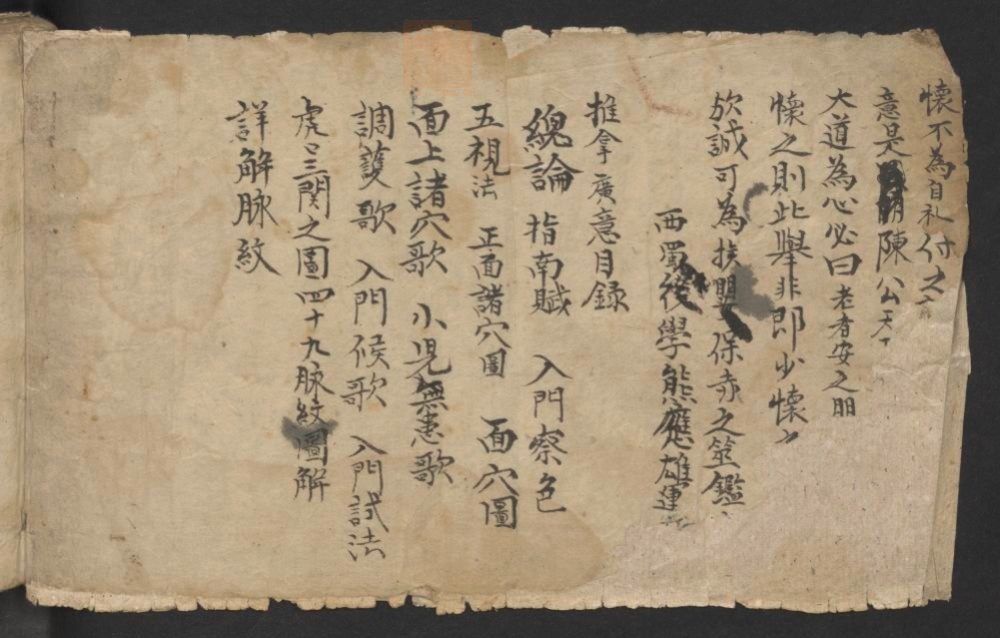 懷不為自私付之
意是陳公天下
大道為心必曰老者安之朋
懷之則此舉非即少懷之
欤誠可為孩嬰保赤之筮鑑
西蜀後學熊應雄運
推拿廣意目録
總論 指南賦 入門察色
五視法 正面諸穴圖 面穴圖
面上諸穴歌 小児無患歌
調護歌 入門候歌 入門試法
虎口三関之圖四十九脉紋圖解
詳解脉紋